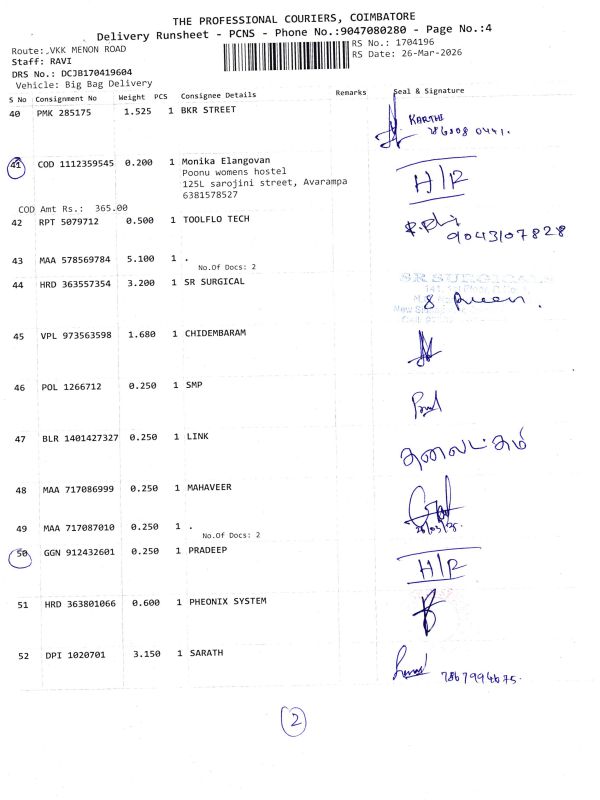 THE PROFESSIONAL COURIERS, COIMBATORE
Delivery Runsheet - PCNS - Phone No.:9047080280 - Page No.:4
Route: VKK MENON ROAD RS No.: 1704196
Staff: RAVI RS Date: 26-Mar-2026
DRS No.: DCJB170419604
Vehicle: Big Bag Delivery
S No Consignment No Weight PCS Consignee Details Remarks Seal & Signature
40 PMK 285175 1.525 1 BKR STREET
KARTHI
41 COD 1112359545 0.200 1 Monika Elangovan H/R
Poonu womens hostel
125L sarojini street, Avarampa
6381578527
COD Amt Rs.: 365.00
42 RPT 5079712 0.500 1 TOOLFLO TECH
9043107828
43 MAA 578569784 5.100 1 .
No.Of Docs: 2
44 HRD 363557354 3.200 1 SR SURGICAL SR SURGICALS
45 VPL 973563598 1.680 1 CHIDEMBARAM
46 POL 1266712 0.250 1 SMP
47 BLR 1401427327 0.250 1 LINK
48 MAA 717086999 0.250 1 MAHAVEER
49 MAA 717087010 0.250 1 .
No.Of Docs: 2
50 GGN 912432601 0.250 1 PRADEEP H/R
51 HRD 363801066 0.600 1 PHEONIX SYSTEM
52 DPI 1020701 3.150 1 SARATH 7867994675.
2